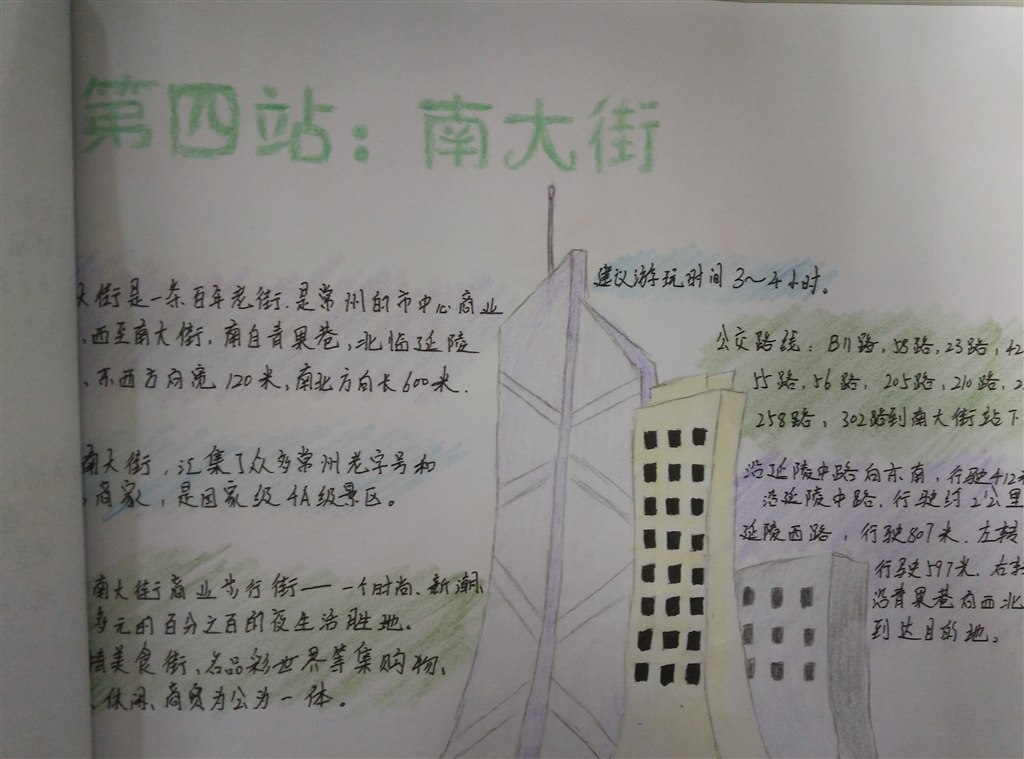 第四站：南大街
大街是一条百年老街.是常州的市中心商业
、西至南大街，南自青果巷,北临延陵
、东西方向宽120米,南北方向长600米.
南大街，汇集了众多常州老字号和
商家，是国家级4A级景区。
南大街商业步行街——一个时尚、新潮、
多元的百分之百的夜生活胜地.
精美食街、名品彩世界等集购物、
、休闲、商贸为公为一体。
建议游玩时间3～4小时。
公交路线：B11路,58路,23路,42
55路,56路，205路,210路,2
258路，302路到南大街站下
沿延陵中路向东南，行驶412米
沿延陵中路.行驶约2公里
延陵西路，行驶807米.左转
行驶597米.右转
沿青果巷向西北
到达目的地。